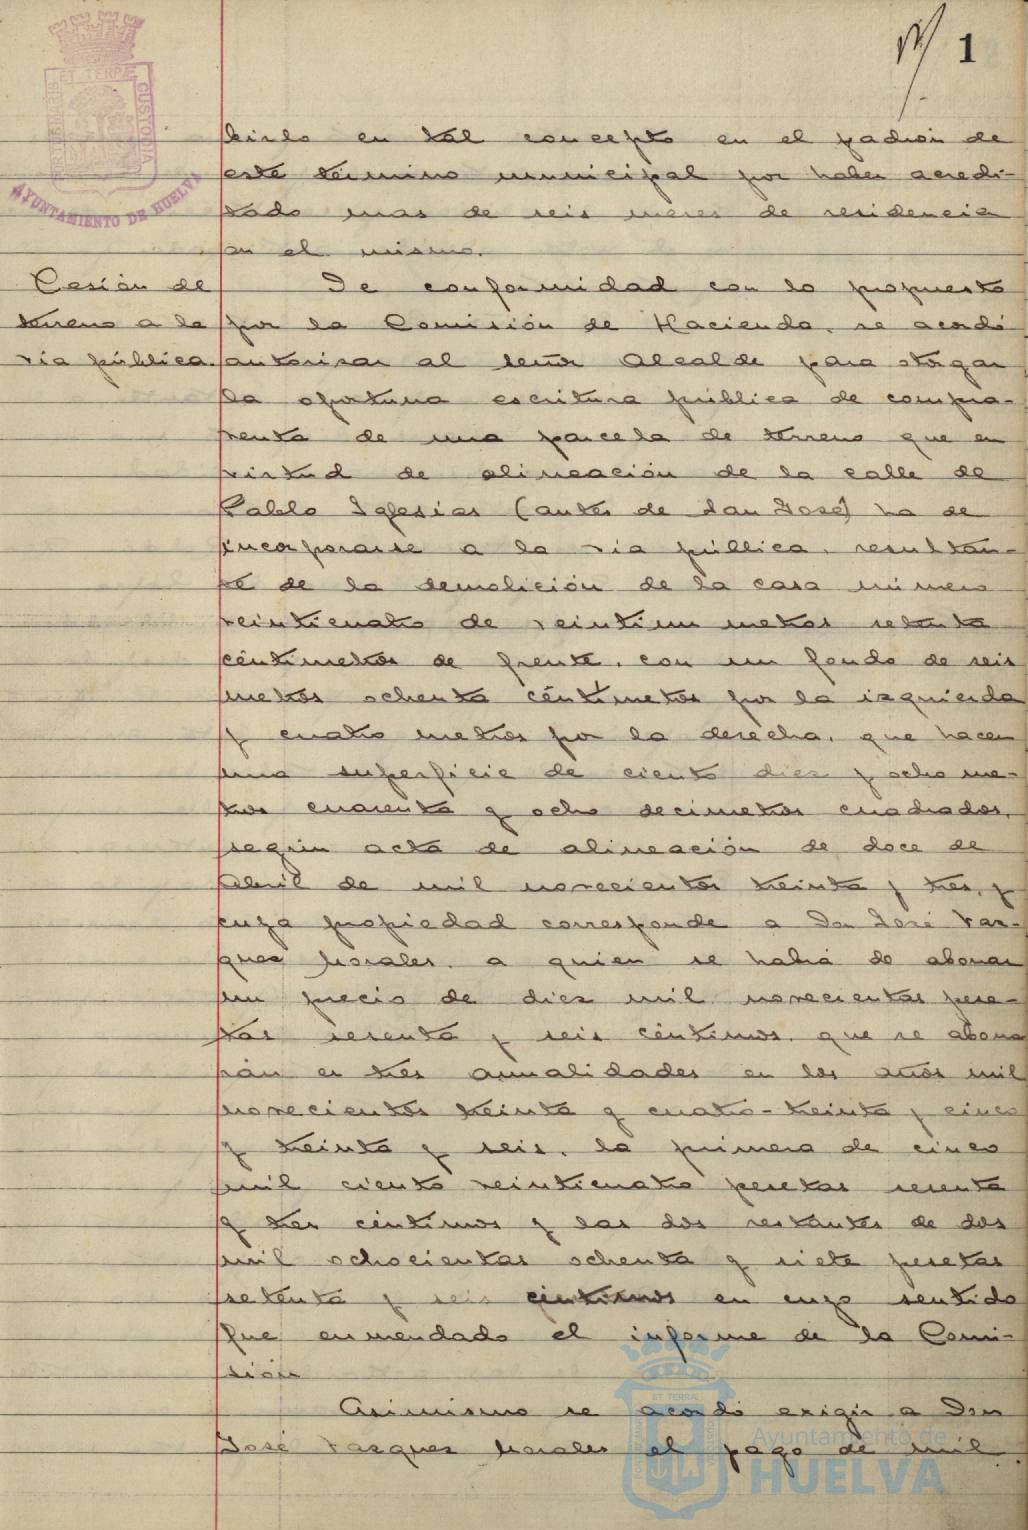 1
ET TERRÆ CUSTODIA
AYUNTAMIENTO DE HUELVA
en tal concepto en el padrón de
este término municipal por haber acredi-
tado mas de seis meses de residencia
en el mismo.
Cesión de
terreno a la
vía pública.
De conformidad con lo propuesto
por la Comisión de Hacienda, se acordó
autorizar al señor Alcalde para otorgar
la oportuna escritura pública de compra-
venta de una parcela de terreno que en
virtud de alineación de la calle de
Pablo Iglesias (antes de San José) ha de
incorporarse a la vía pública, resultan-
te de la demolición de la casa número
veinticuatro de veintiun metros setenta
céntimetros de frente, con un fondo de seis
metros ochenta céntimetros por la izquierda
y cuatro metros por la derecha, que hacen
una superficie de ciento diez y ocho me-
tros cuarenta y ocho decimetros cuadrados,
según acta de alineación de doce de
Abril de mil novecientos treinta y tres, y
cuya propiedad corresponde a Don José Vaz-
quez Morales, a quien se habrá de abonar
un precio de diez mil novecientas pese-
tas sesenta y seis céntimos, que se abona
rán en tres anualidades en los años mil
novecientos treinta y cuatro-treinta y cinco
y treinta y seis, la primera de cinco
mil ciento veinticuatro pesetas sesenta
y tres céntimos y las dos restantes de dos
mil ochocientas ochenta y siete pesetas
setenta y seis céntimos en cuyo sentido
fue enmendado el informe de la Comi-
sión
Asimismo se acordó exigir a Don
José Vazquez Morales el pago de mil
ET TERRÆ
Ayuntamiento de
HUELVA